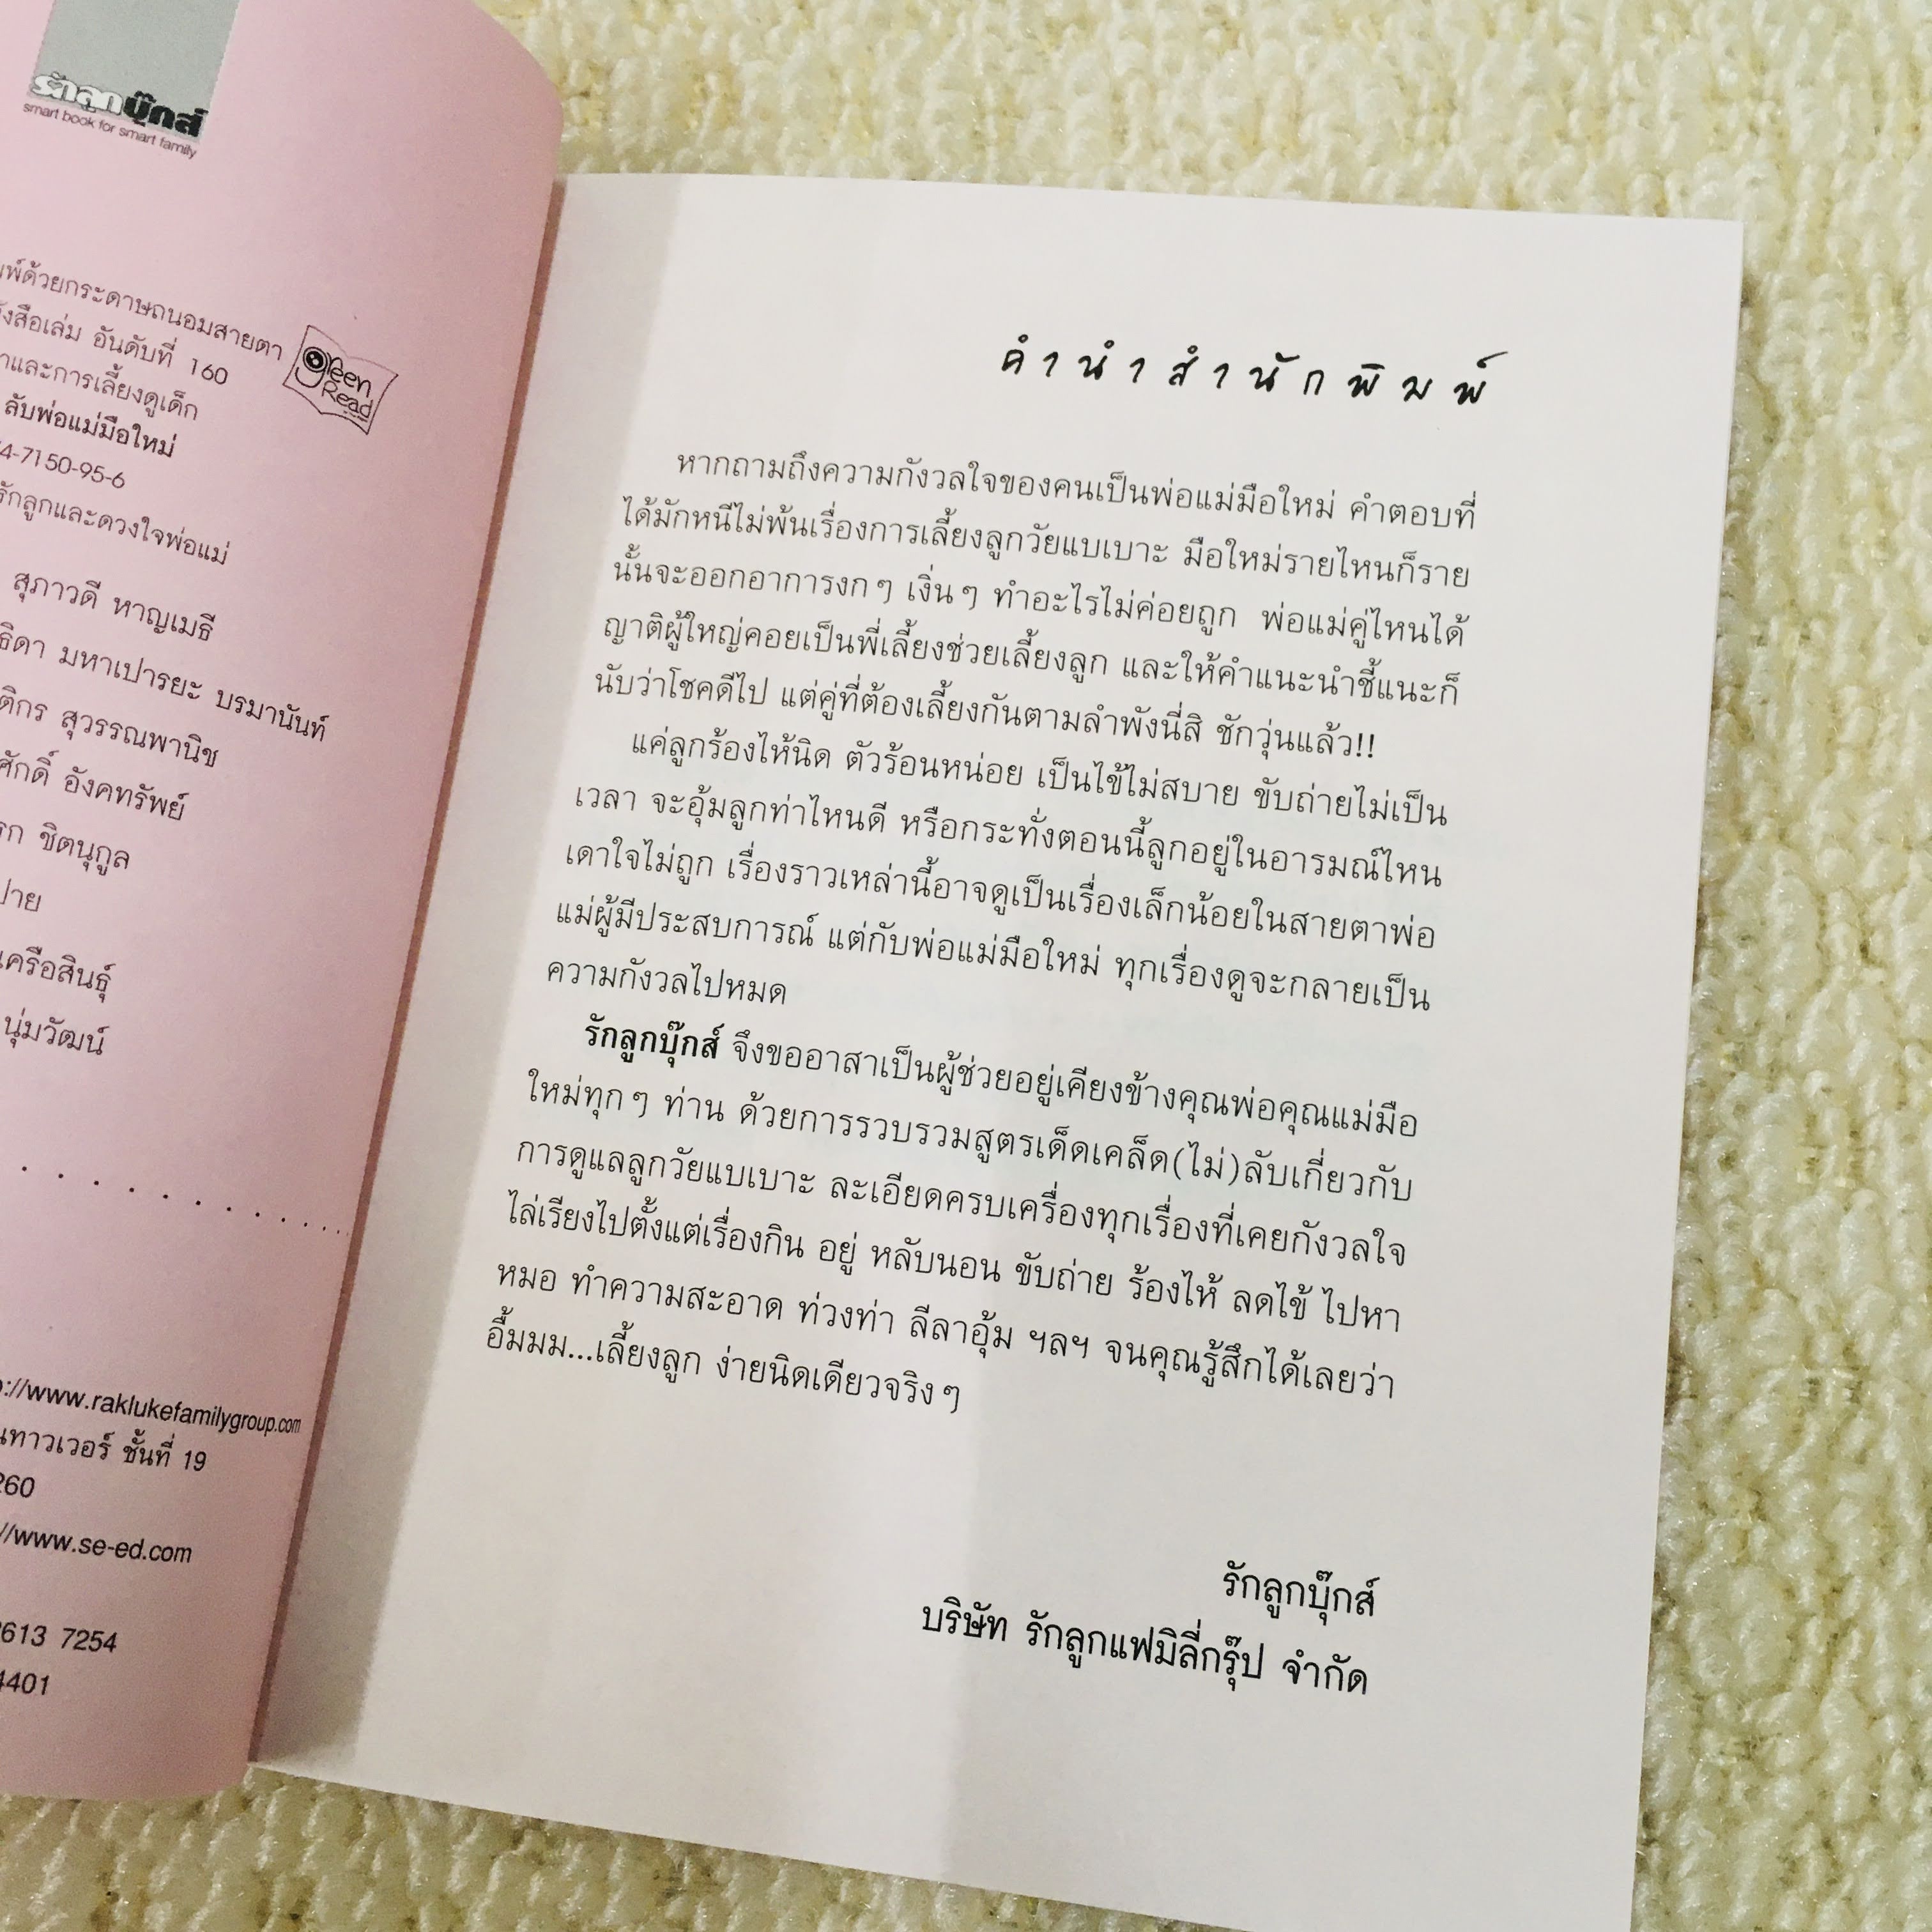 รักลูกบุ๊กส์
smart book for smart family
พ์ด้วยกระดาษถนอมสายตา
green Read
สือเล่ม อันดับที่ 160
และการเลี้ยงดูเด็ก
ลับพ่อแม่มือใหม่
4-7150-95-6
รักลูกและดวงใจพ่อแม่
สุภาวดี หาญเมธี
ธิดา มหาเปารยะ บรมานันท์
ติกร สุวรรณพานิช
ศักดิ์ อังคทรัพย์
รก ชิตนุกูล
ปาย
เครือสินธุ์
นุ่มวัฒน์
://www.raklukefamilygroup.com
นทาวเวอร์ ชั้นที่ 19
260
//www.se-ed.com
613 7254
4401
คำนำสำนักพิมพ์
หากถามถึงความกังวลใจของคนเป็นพ่อแม่มือใหม่ คำตอบที่
ได้มักหนีไม่พ้นเรื่องการเลี้ยงลูกวัยแบเบาะ มือใหม่รายไหนก็ราย
นั้นจะออกอาการงกๆ เงิ่นๆ ทำอะไรไม่ค่อยถูก พ่อแม่คู่ไหนได้
ญาติผู้ใหญ่คอยเป็นพี่เลี้ยงช่วยเลี้ยงลูก และให้คำแนะนำชี้แนะก็
นับว่าโชคดีไป แต่คู่ที่ต้องเลี้ยงกันตามลำพังนี่สิ ชักวุ่นแล้ว!!
แค่ลูกร้องไห้นิด ตัวร้อนหน่อย เป็นไข้ไม่สบาย ขับถ่ายไม่เป็น
เวลา จะอุ้มลูกท่าไหนดี หรือกระทั่งตอนนี้ลูกอยู่ในอารมณ์ไหน
เดาใจไม่ถูก เรื่องราวเหล่านี้อาจดูเป็นเรื่องเล็กน้อยในสายตาพ่อ
แม่ผู้มีประสบการณ์ แต่กับพ่อแม่มือใหม่ ทุกเรื่องดูจะกลายเป็น
ความกังวลไปหมด
รักลูกบุ๊กส์ จึงขออาสาเป็นผู้ช่วยอยู่เคียงข้างคุณพ่อคุณแม่มือ
ใหม่ทุกๆ ท่าน ด้วยการรวบรวมสูตรเด็ดเคล็ด(ไม่)ลับเกี่ยวกับ
การดูแลลูกวัยแบเบาะ ละเอียดครบเครื่องทุกเรื่องที่เคยกังวลใจ
ไล่เรียงไปตั้งแต่เรื่องกิน อยู่ หลับนอน ขับถ่าย ร้องไห้ ลดไข้ ไปหา
หมอ ทำความสะอาด ท่วงท่า ลีลาอุ้ม ฯลฯ จนคุณรู้สึกได้เลยว่า
อื้มมม...เลี้ยงลูก ง่ายนิดเดียวจริงๆ
รักลูกบุ๊กส์
บริษัท รักลูกแฟมิลี่กรุ๊ป จำกัด